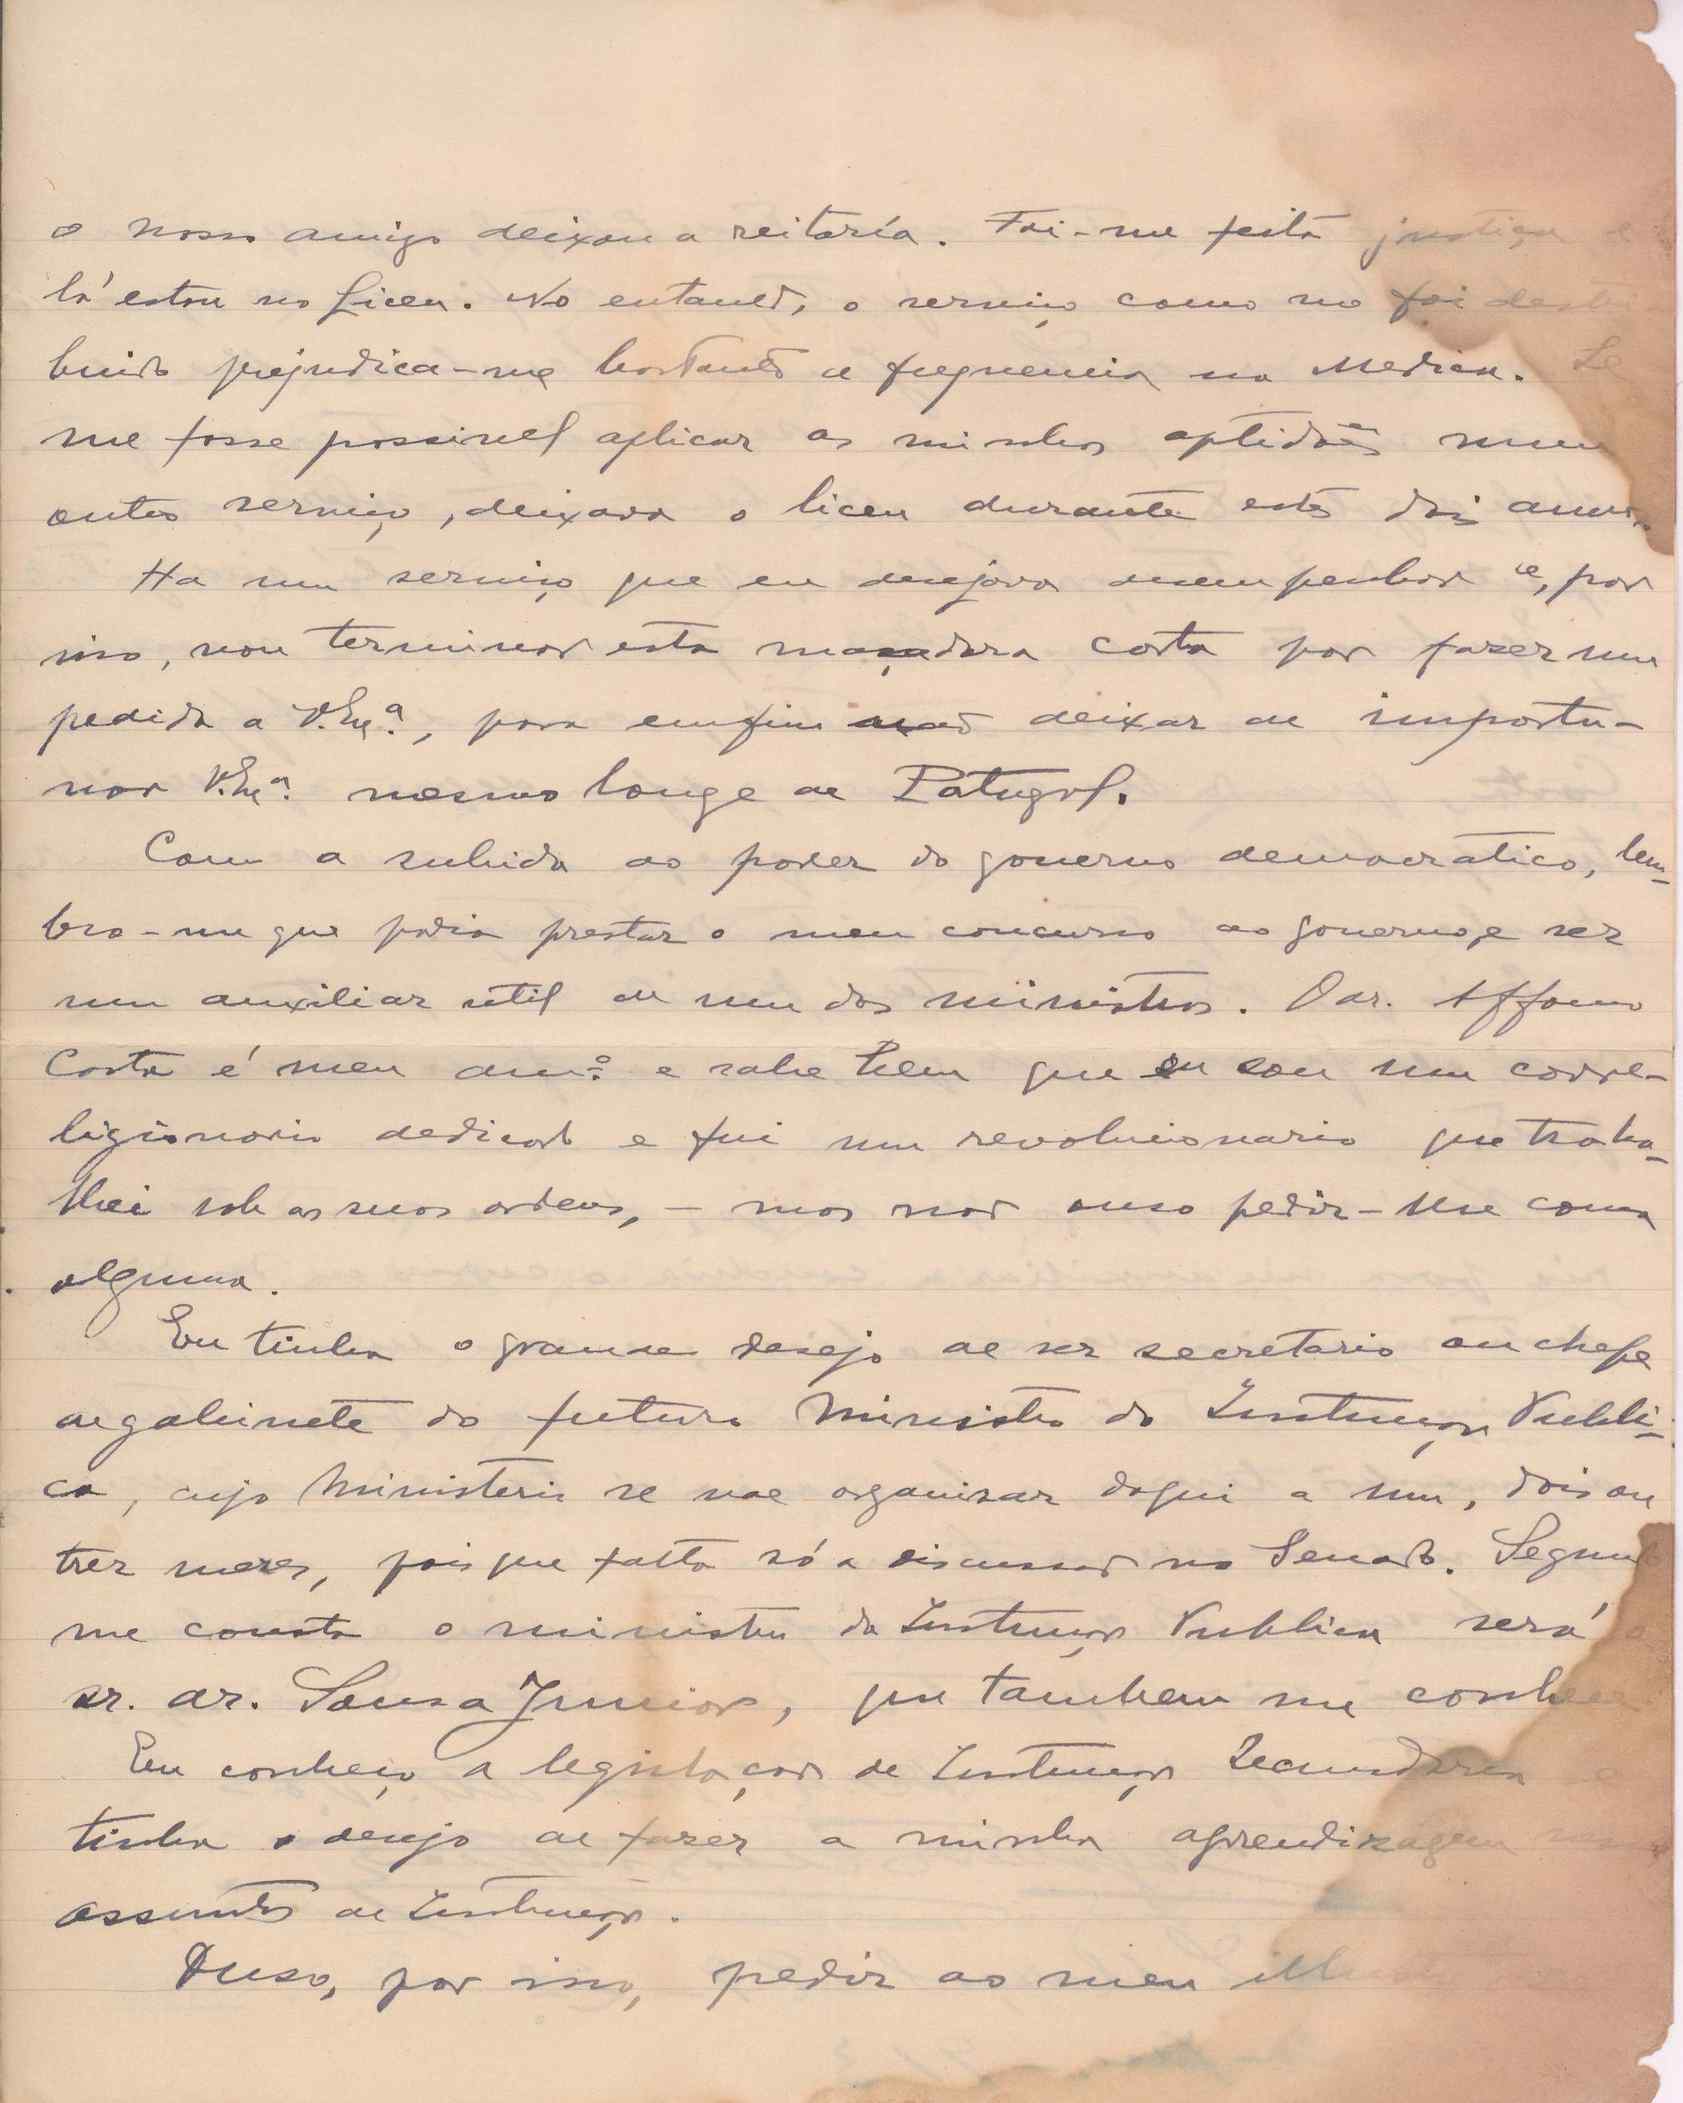 o nosso amigo deixou a reitoría. Foi-me feita justiça e
lá estou no Liceu. No entanto, o serviço como me foi destri
buido prejudica-me bastante a frequencia na Medica. Se
me fosse possivel aplicar as minhas aptidões num
outro serviço, deixava o liceu durante estes dois annos.
Ha um serviço que eu desejava desempenhar e, por
isso, vou terminar esta maçadora carta por fazer um
pedido a V. Exª., para emfim não deixar de importu-
nar V. Exª. mesmo longe de Portugal.
Com a subida ao poder do governo democratico, lem-
bro-me que podia prestar o meu concurso ao governo, e ser
um auxiliar util de um dos ministros. O dr. Affonso
Costa é meu amº. e sabe bem que eu sou um corre-
ligionario dedicado e fui um revolucionario que traba-
lhei sob as suas ordens, - mas não ouso pedir-lhe cousa
alguma.
Eu tinha o grande desejo de ser secretario ou chefe
de gabinete do futuro Ministro da Instrução Publi-
ca, cujo Ministerio se vae organisar daqui a um, dois ou
trez mezes, pois que falta só a discussão no Senado. Segundo
me consta o ministro da Instrução Publica será o
sr. dr. Sousa Junior, que tambem me conhece
Eu conheço a legislação de Instrução Secundaria e
tinha o desejo de fazer a minha aprendizagem
assuntos de Instrução.
Ouso, por isso, pedir ao meu